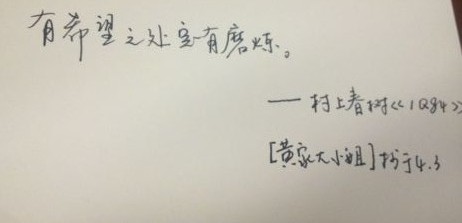 有希望之处定有磨炼。
——村上春树<<1Q84>>
[黄家大小姐]抄于4.3